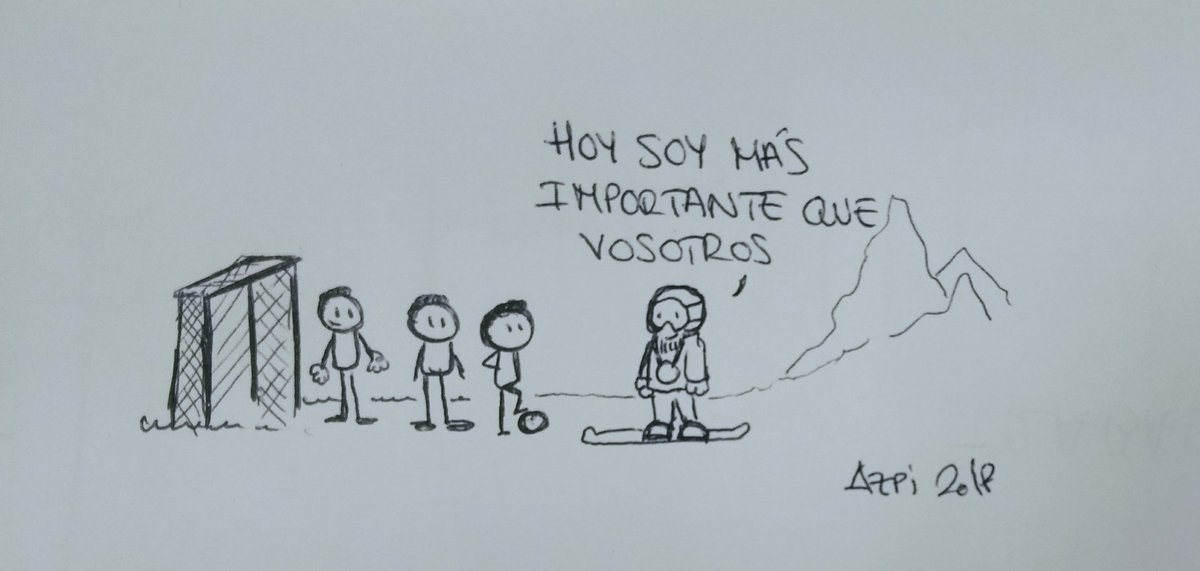 HOY SOY MÁS
IMPORTANTE QUE
VOSOTROS
AZPi 2018